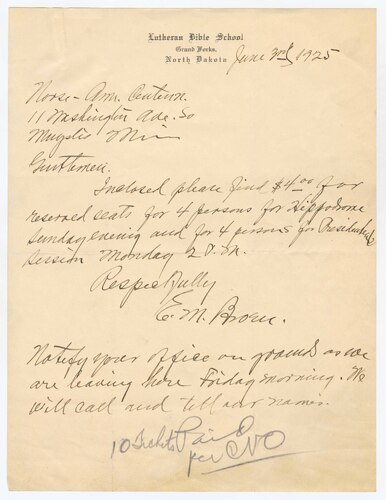 Lutheran Bible School
Grand Forks,
North Dakota
June 3rd, 1925
Norse-Am. Centenn.
11 Washington Ave. So
Minn
Gentlemen.
Inclosed please find $4.00 for
reserved seats for 4 persons for Hippodrome
Sunday evening and for 4 persons for Presidents
session Monday 2 P.M.
Respectfully
E. M. Broen.
Notify your office on grounds as we
are leaving here Friday morning. We
will call and tell our names.
10 Tickets Paid
per CNO